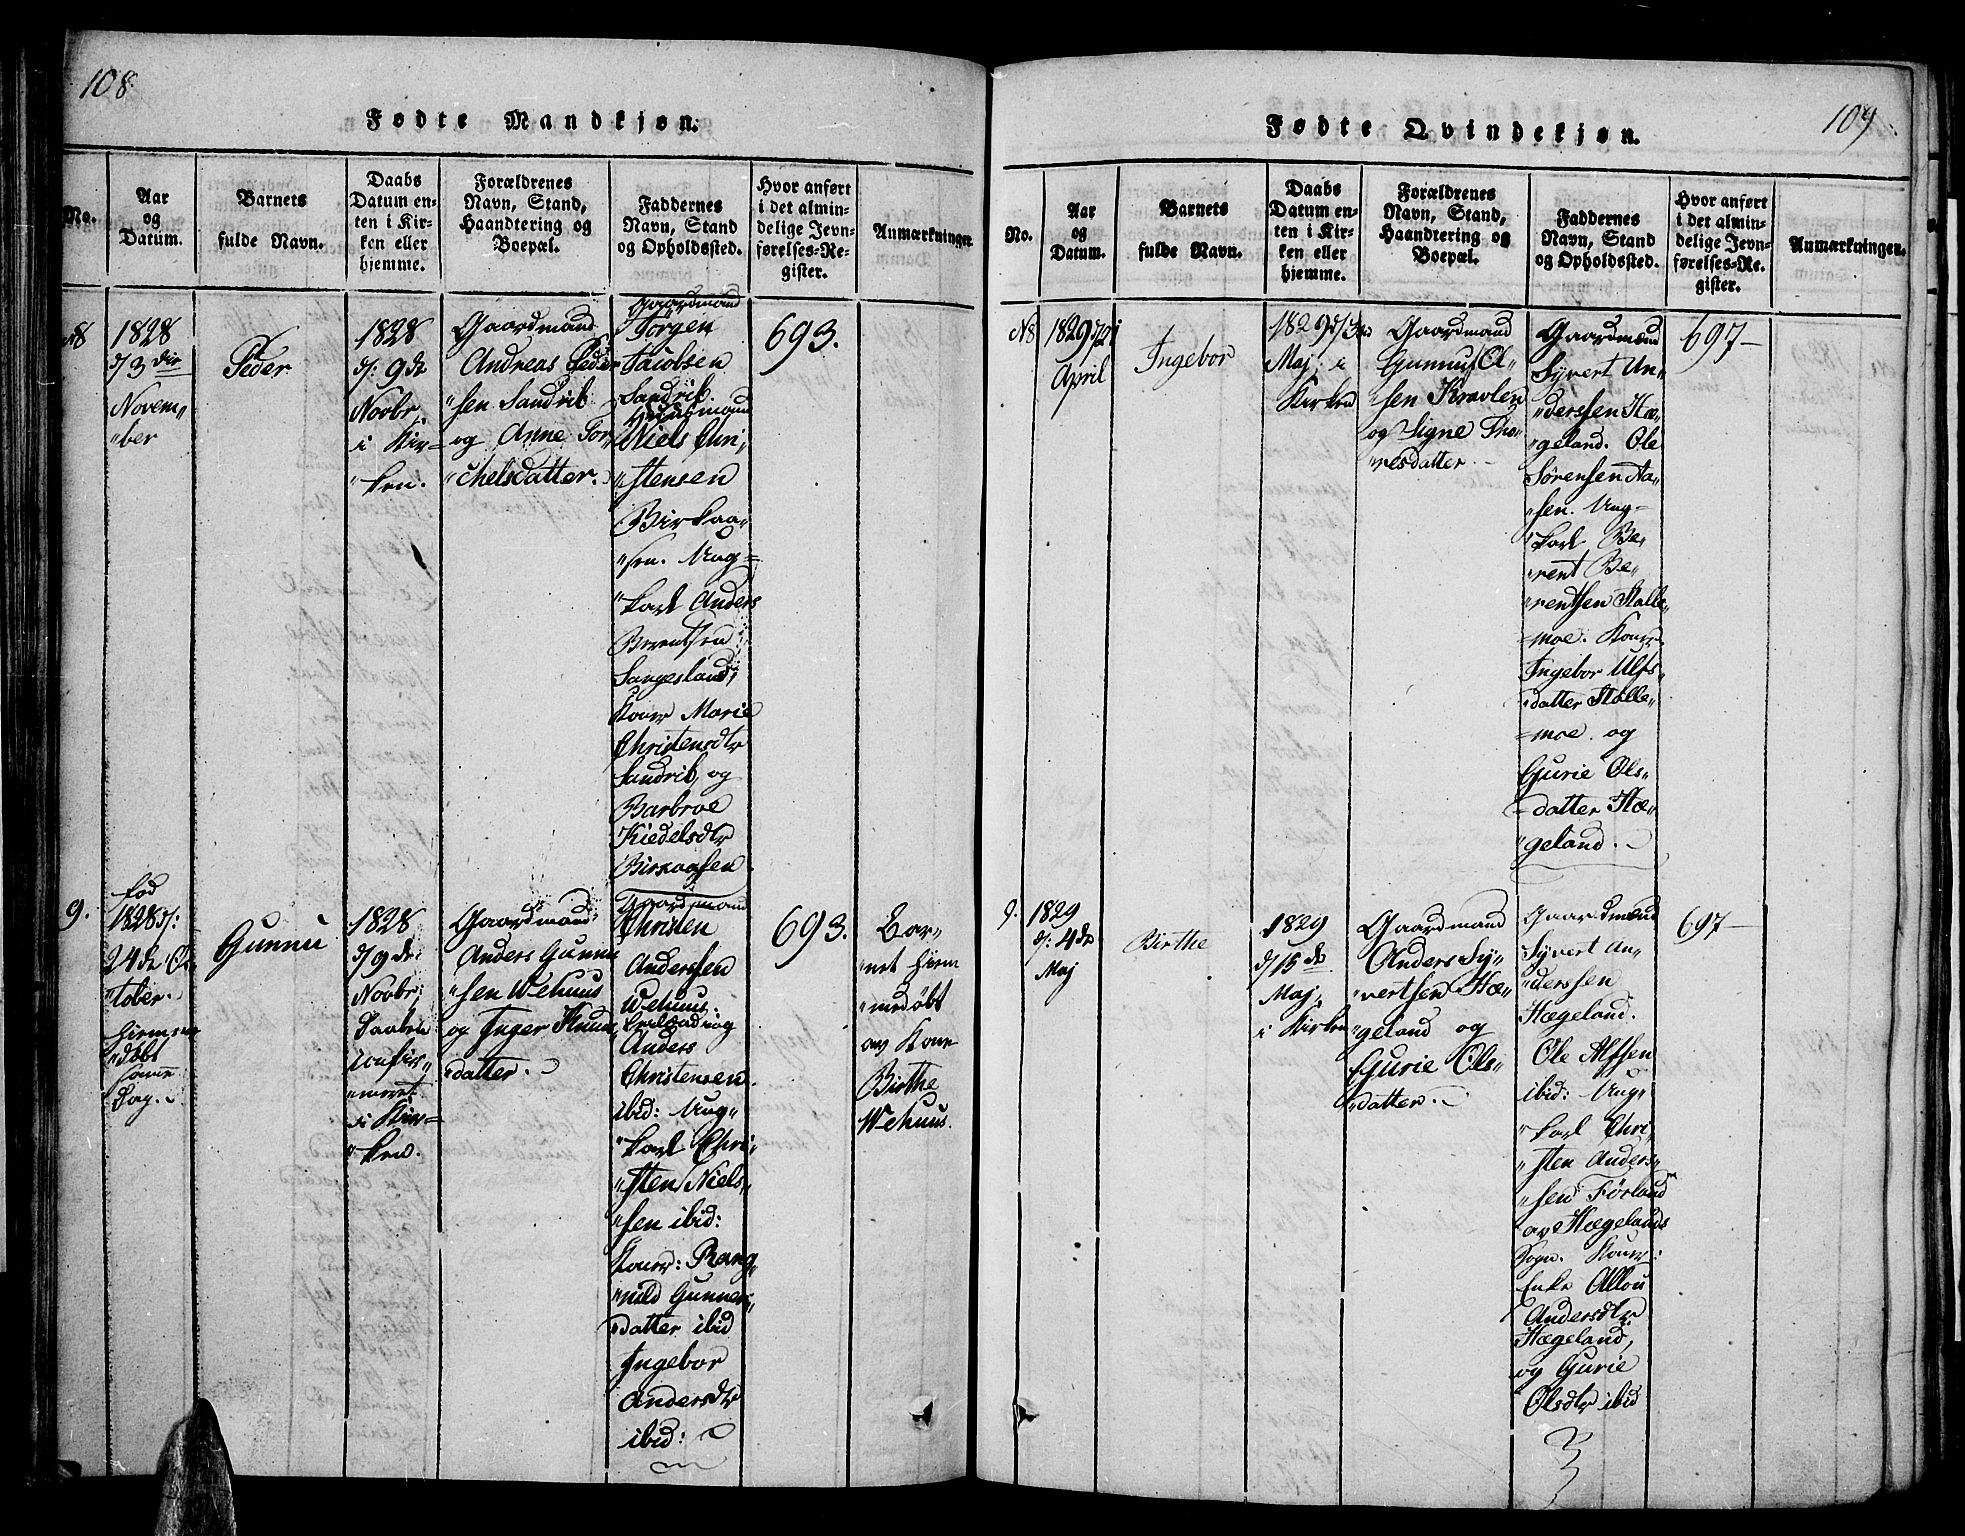 108.
Fødte Mandkjøn.
No.
Aar
og
Datum.
Barnets
fulde Navn.
Daabs
Datum en-
ten i Kir-
ken eller
hjemme.
Forældrenes
Navn, Stand,
Haandtering og
Boepæl.
Faddernes
Navn, Stand
og Opholdssted.
Hvor anført
i det almin-
delige Jevn-
førelses-Re-
gister.
Anmærkninger.
N8
1828
d/3die
Novem„
„ber
Peder
1828
d: 9de
Novbr.
i Kir-
„ken.
Gaardmand
Andreas Peder
„sen Sandrib
og Anne Tor„
„chelsdatter.
Gaardmand
Torgen
Jacobsen
Sandrib.
Huusmand
Niels Chri„
„stensen
Birkaa„
„sen. Ung=
„karl Anders
Berentsen
Sangesland;
Koner Marie
Christensdtr
Sandrib, og
Barbroe
Kiedelsdtr
Birkaasen
693.
9.
fød
1828 d:
24de Oc
„tober.
hiemme
„døbt
samme
Dag.
Gunnu
1828
d/9de
Novbr;
Daaben
confir„
„meret
i Kir=
„ken.
Gaardmand
Anders Gunnu
„sen Wehuus
og Inger Knu
„datter.
Gaardmand
Christen
Anderssen
Wehuus.
og
Anders
Christensen
ibid: Ung„
„karl Chri„
„sten Niels„
„sen ibid:
Koner: Rang„
„nild Gunnes„
„datter ibid
Ingebor
Andersdtr
ibid:
693.
Bar„
„net hiem
„medøbt
av Kone
Birthe
Wehuus.
109
Fødte Qvindekjøn.
No.
Aar
og
Datum.
Barnets
fulde Navn.
Daabs
Datum en-
ten i Kir-
ken eller
hjemme.
Forældrenes
Navn, Stand,
Haandtering og
Boepæl.
Faddernes
Navn, Stand
og Opholdssted.
Hvor anført
i det almin-
delige Jevn-
førelses-Re-
gister.
Anmærkninger.
N8
1829 d/21
April
Ingebor
1829 d/3de
Maj i
Kirken
Gaardmand
Gunnu Ol„
„sen Kravlen
og Signe Tho„
„resdatter.
Gaardmænd
Syvert An„
„derssen Hæ„
„geland. Ole
Sørensen Aa„
„sen. Ung=
„karl Be„
„rent Be„
„rentsen Stalle„
=moe. Koner
Ingebor Ulfs„
„datter Stalle„
=moe. og
Gurie Ols„
=datter Hæ„
„geland.
697-
9.
1829
d: 4de
Maj
Birthe
1829
d/15de
Maj„
i Kirken
Gaardmand
Anders Sy„
„vertsen Hæ„
„geland og
Gurie Ols„
„datter.
Gaardmænd
Syvert An„
„derssen
Hægeland.
Ole Alfsen
ibid: Ung„
„karl Chri„
„sten Anders„
„sen Førland
av Hægelands
Sogn. Koner:
Enke Allou
Andersdtr
Hægeland,
og Gurie
Olsdtr ibid
697-